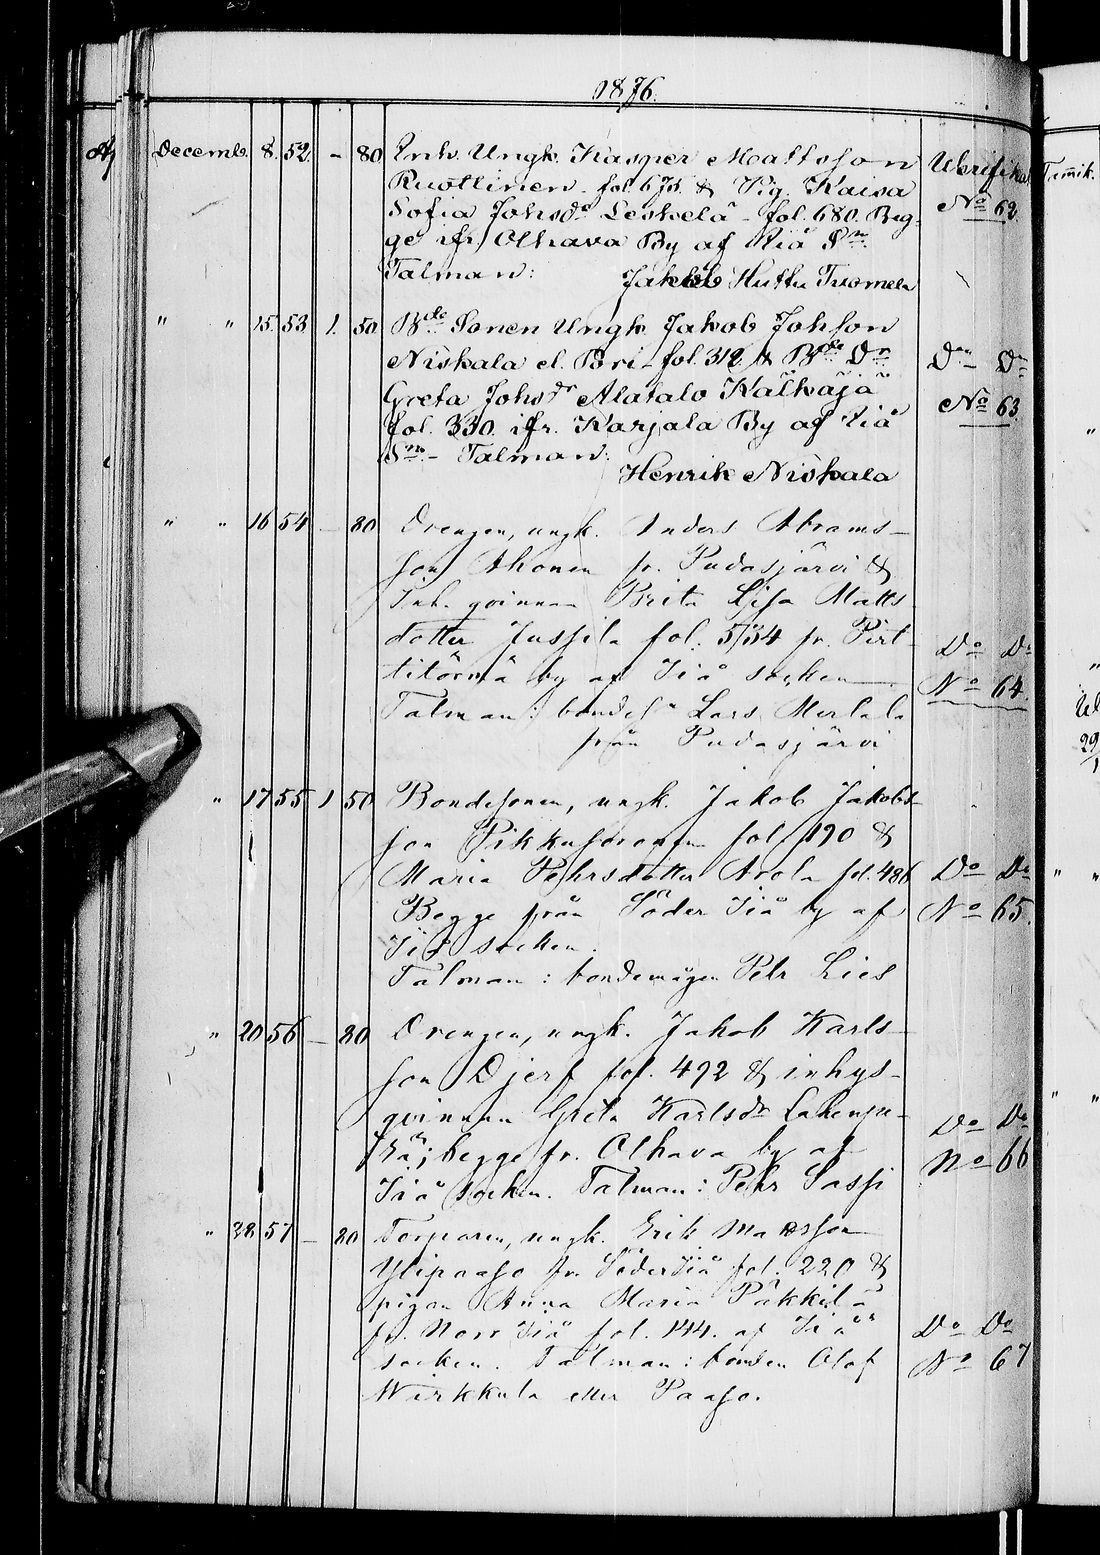 1876.
Decemb. 8. 52. - 80 Inh. Ungk. Kasper Mattsson
Ruottinen. fol. 675. & Pig. Kaisa
Sofia Johsdr Leskelä - fol. 680. Beg-
ge ifr. Olhava By af Iiå Sn.
Talman: Jakob Huttu Tuomela
Verifikat
No 62.
" " 15. 53 1. 50 Bde Sonen Ungk. Jakob Johsson
Niskala el. Bri - fol. 312 & Bde Dr
Greta Johsdr Alatalo Kälkäjä
fol. 330. ifr. Karjala By af Iiå
Sn. - Talman:
Henrik Niskala
Do Do
No 63.
" " 16 54 - 80 Drengen, ungk. Anders Abrams-
son Ahonen fr. Pudasjärvi &
Inh. qvinnan Brita Lisa Matts-
dotter Jussila fol. 534 fr. Pirt-
titörmä by af Iiå socken
Talman: Lars Merkala
från Pudasjärvi
Do Do
No 64.
" 17 55 1 50 Bondesonen, ungk. Jakob Jakobs-
son fol. 190 &
Maria Pehrsdotter Arola fol. 486
Begge från Söder Iiå by af
Iiå socken.
Talman: bondemågen Pehr Lies
Do Do
No 65.
" 20 56 - 80 Drengen, ungk. Jakob Karls-
son Djerf fol. 492 & inhys-
qvinnan Greta Karlsdr
begge fr. Olhava by af
Iiå socken. Talman: Pehr Sassi
Do Do
No 66
" 28 57 - 80 Torparen, ungk. Erik Matsson
Ylipaaso fr. Söder Iiå fol. 220 &
pigan Anna Maria Päkkilä
fr. Norr Iiå fol. 144. af Iiå
socken. Talman: bonden Olof
Wirkkula eller Paaso.
Do Do
No 67